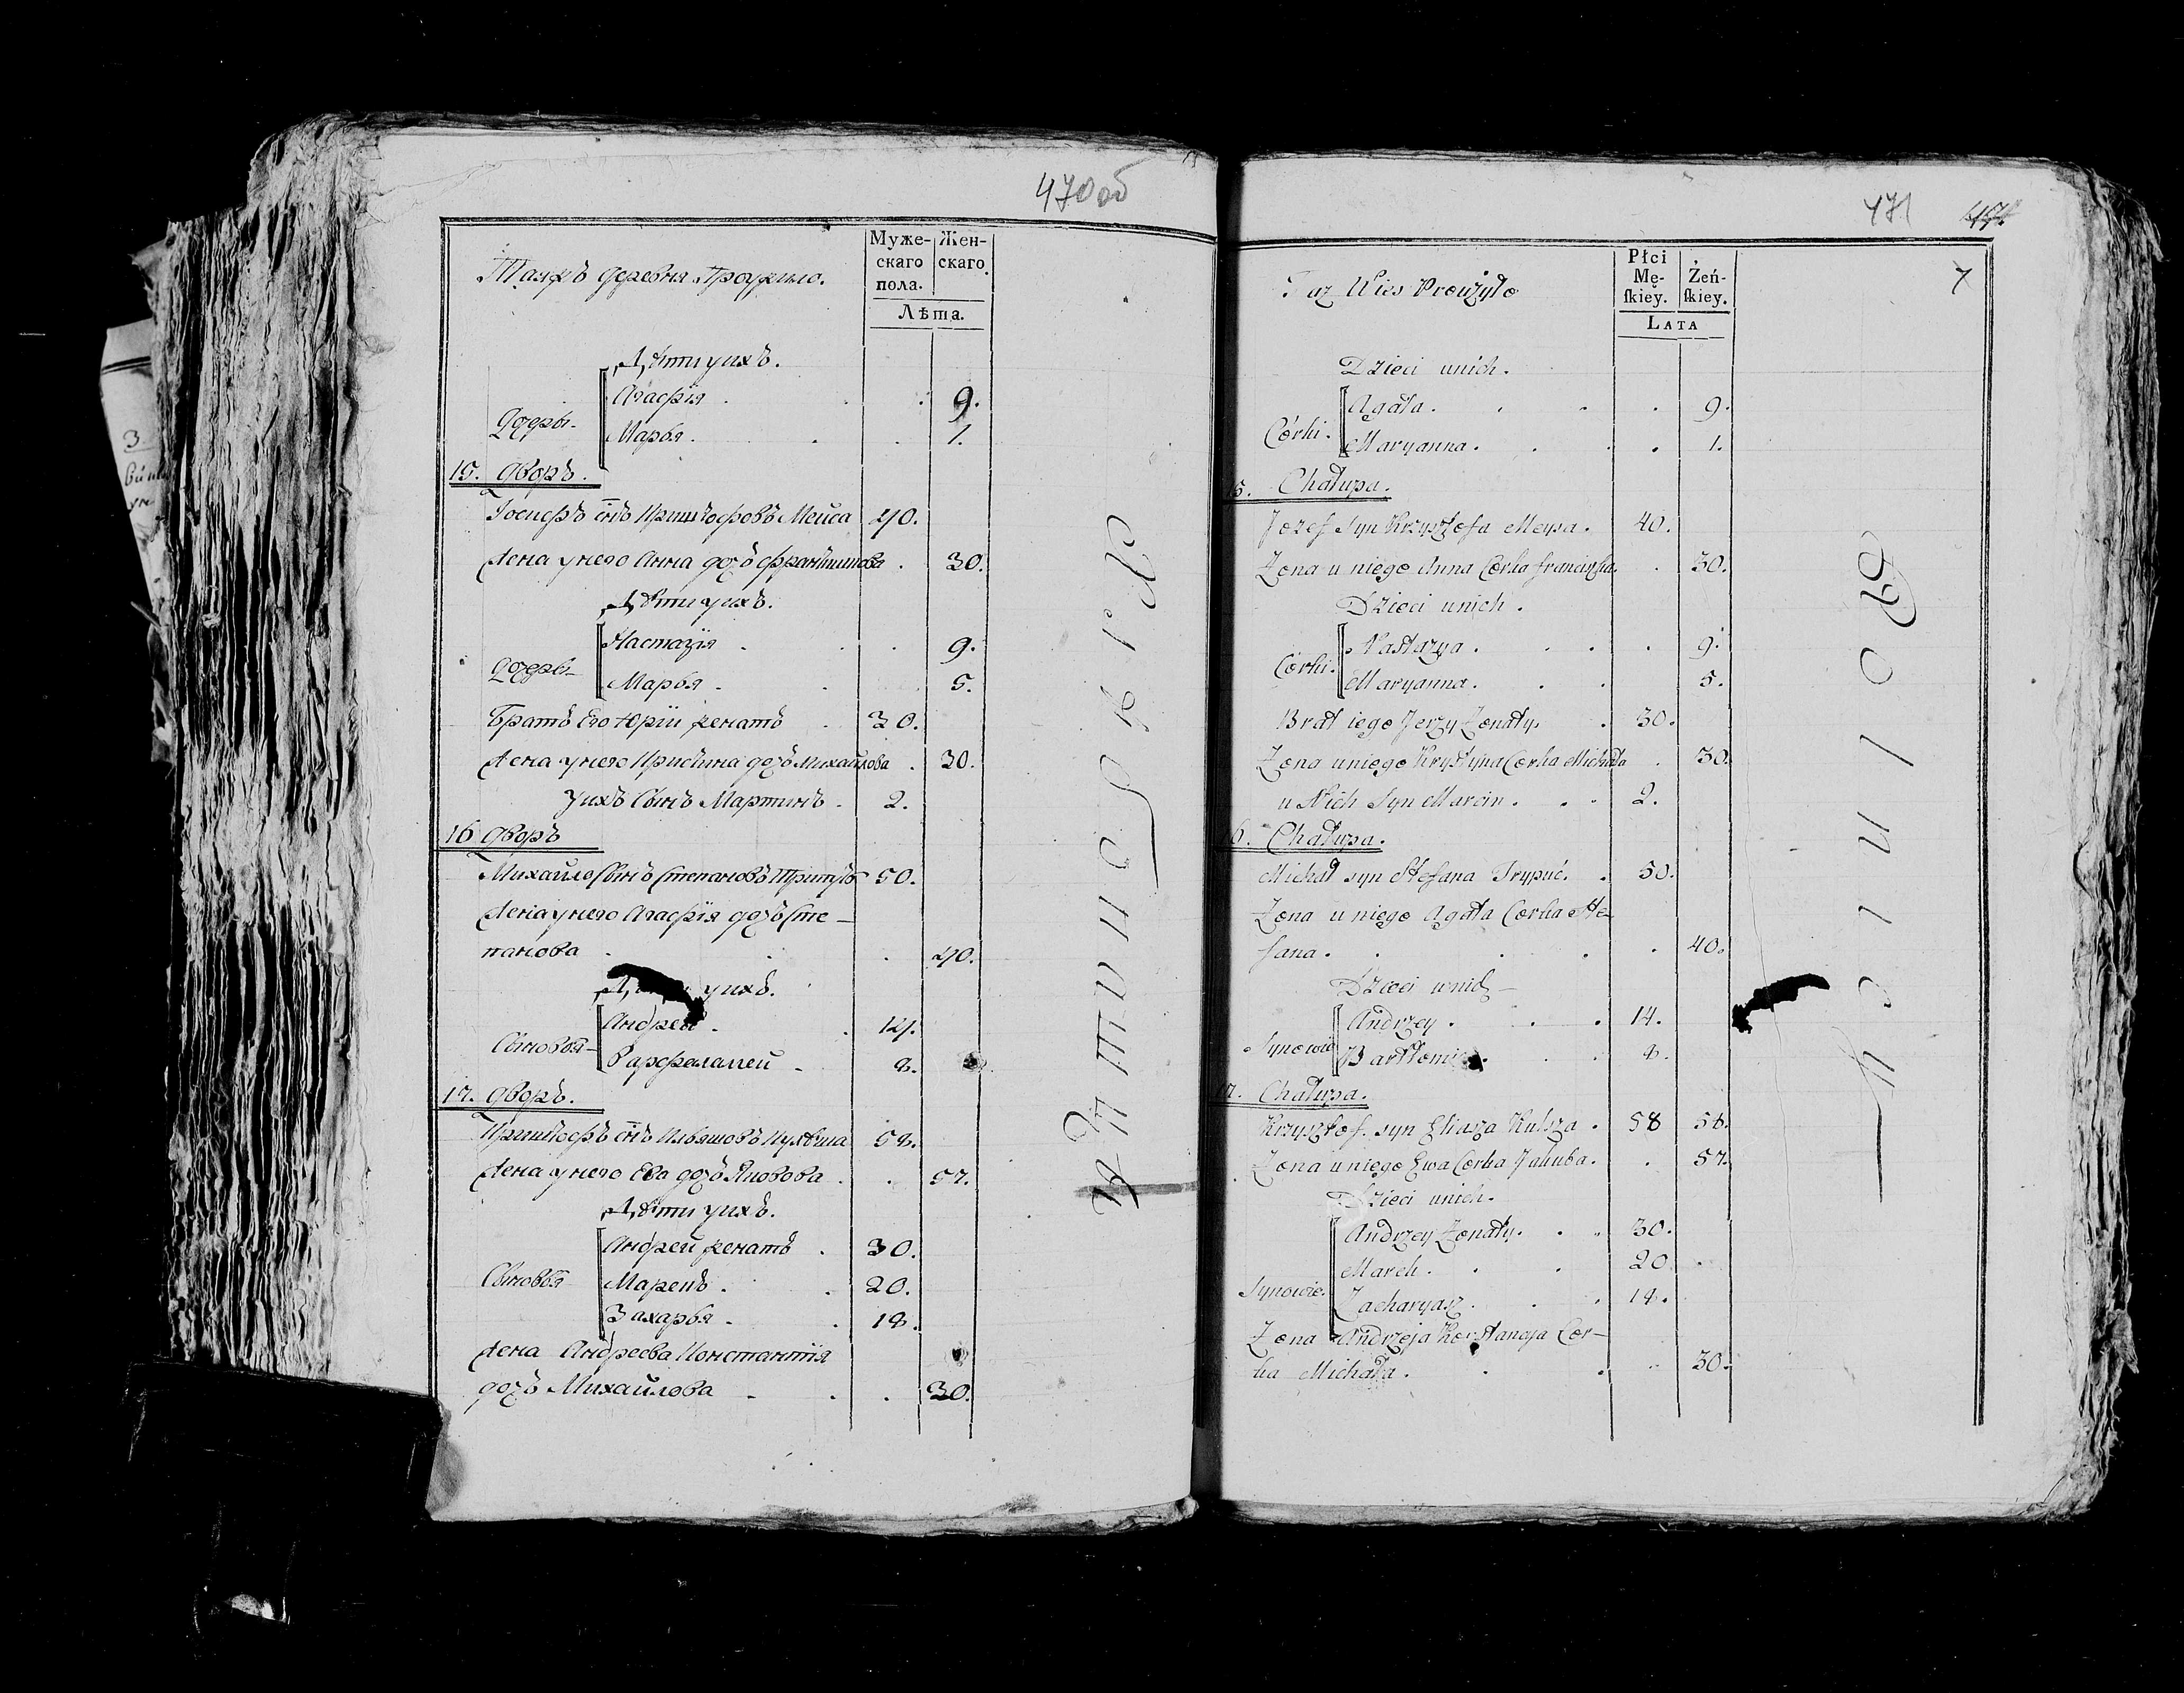 470 об
Таяжъ деревня Проужило.
Муже-
скаго
пола.
Жен-
скаго.
Лѣта.
Дѣти уихъ.
Дочери
Агафія . 9.
Марья . 1.
15. Дворъ.
Іосифъ снъ Криштофовъ Мейса 40.
Жена унего Анна дочь Францишкова . 30.
Дѣти уихъ.
Дочери
Настазія . 9.
Марья . 5.
Братъ Его Юрій женатъ 30.
Жена унего Кристина дочь Михайлова . 30.
Уихъ Сынъ Мартинъ . 2.
16 Дворъ
Михайло Сынъ Степановъ 50.
Жена унего Агафія дочь Сте-
панова . 40.
уихъ.
Сыновья
Андрей . 14.
Варфаламей . 8.
17. Дворъ.
Криштофъ снъ Ильяшовъ 58.
Жена унего Ева дочь Яковова . 57.
Дѣти уихъ.
Сыновья
Андрей женатъ . 30.
Марекъ . 20.
Захарья . 18.
Жена Андреева Константія
дочь Михайлова . 30.
471
7
Taz Wies Prouzyło
Płci
Mę-
ſkiey.
Żeń-
ſkiey.
Lata
Dzieci unich.
Córki.
Agata . 9.
Maryanna . 1.
15. Chałupa.
Jozef syn Krzysztofa Meysa . 40.
Zona u niego Anna Corka Franciszka . 30.
Dzieci unich.
Córki.
Nastazya . 9.
Maryanna . 5.
Brat iego Jerzy Zonaty . 30.
Zona uniego Krystyna Corka Michała . 30.
u Nich Syn Marcin . 2.
16. Chałupa.
Michał syn Stefana Trypuć . 50.
Zona u niego Agata Corka Ste-
fana . 40.
Dzieci unich
Synowie
Andrzey . 14.
Bartłomiej . 8.
17. Chałupa.
Krzysztof syn Eliasza Kulsza . 58 58.
Zona uniego Ewa Corka Jakuba . 57.
Dzieci unich.
Synowie.
Andrzey Zonaty . 30.
Marek . 20
Zacharyasz . 18.
Zona Andrzeja Konstancja Cor-
ka Michała . 30.